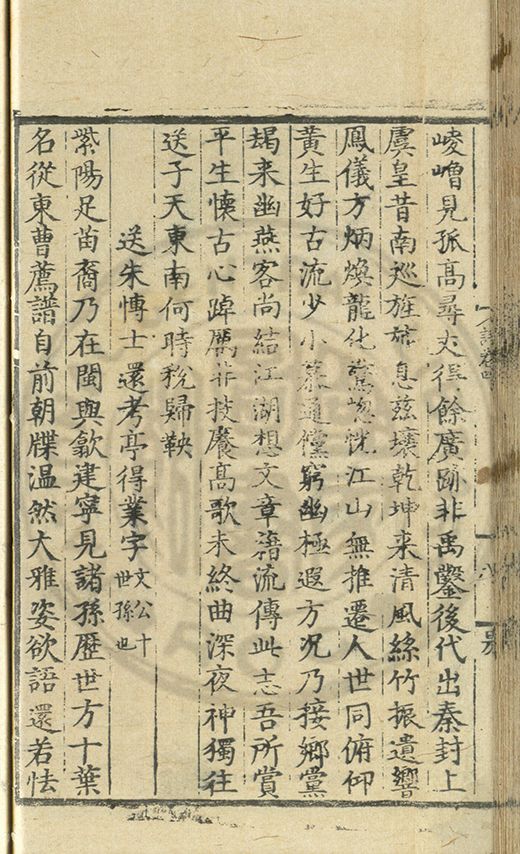 崚嶒見孤高尋丈得餘廣跡非禹鑿後代出秦封上
虞皇昔南巡旌旂息茲壤乾坤来清風絲竹振遺響
鳳儀方炳煥龍化驚惚恍江山無推遷人世同俯仰
黃生好古流少小慕通儻窮幽極遐方况乃接鄉黨
朅来幽燕客尚結江湖想文章藉流傳此志吾所賞
平生懐古心踔厲非技癢高歌未終曲深夜神獨往
送子天東南何時稅歸鞅
送朱博士還考亭得業字文公十世孫也
紫陽足苗裔乃在閩與歙建寧見諸孫歷世方十葉
名從東曹薦譜自前朝牒温然大雅姿欲語還若怯